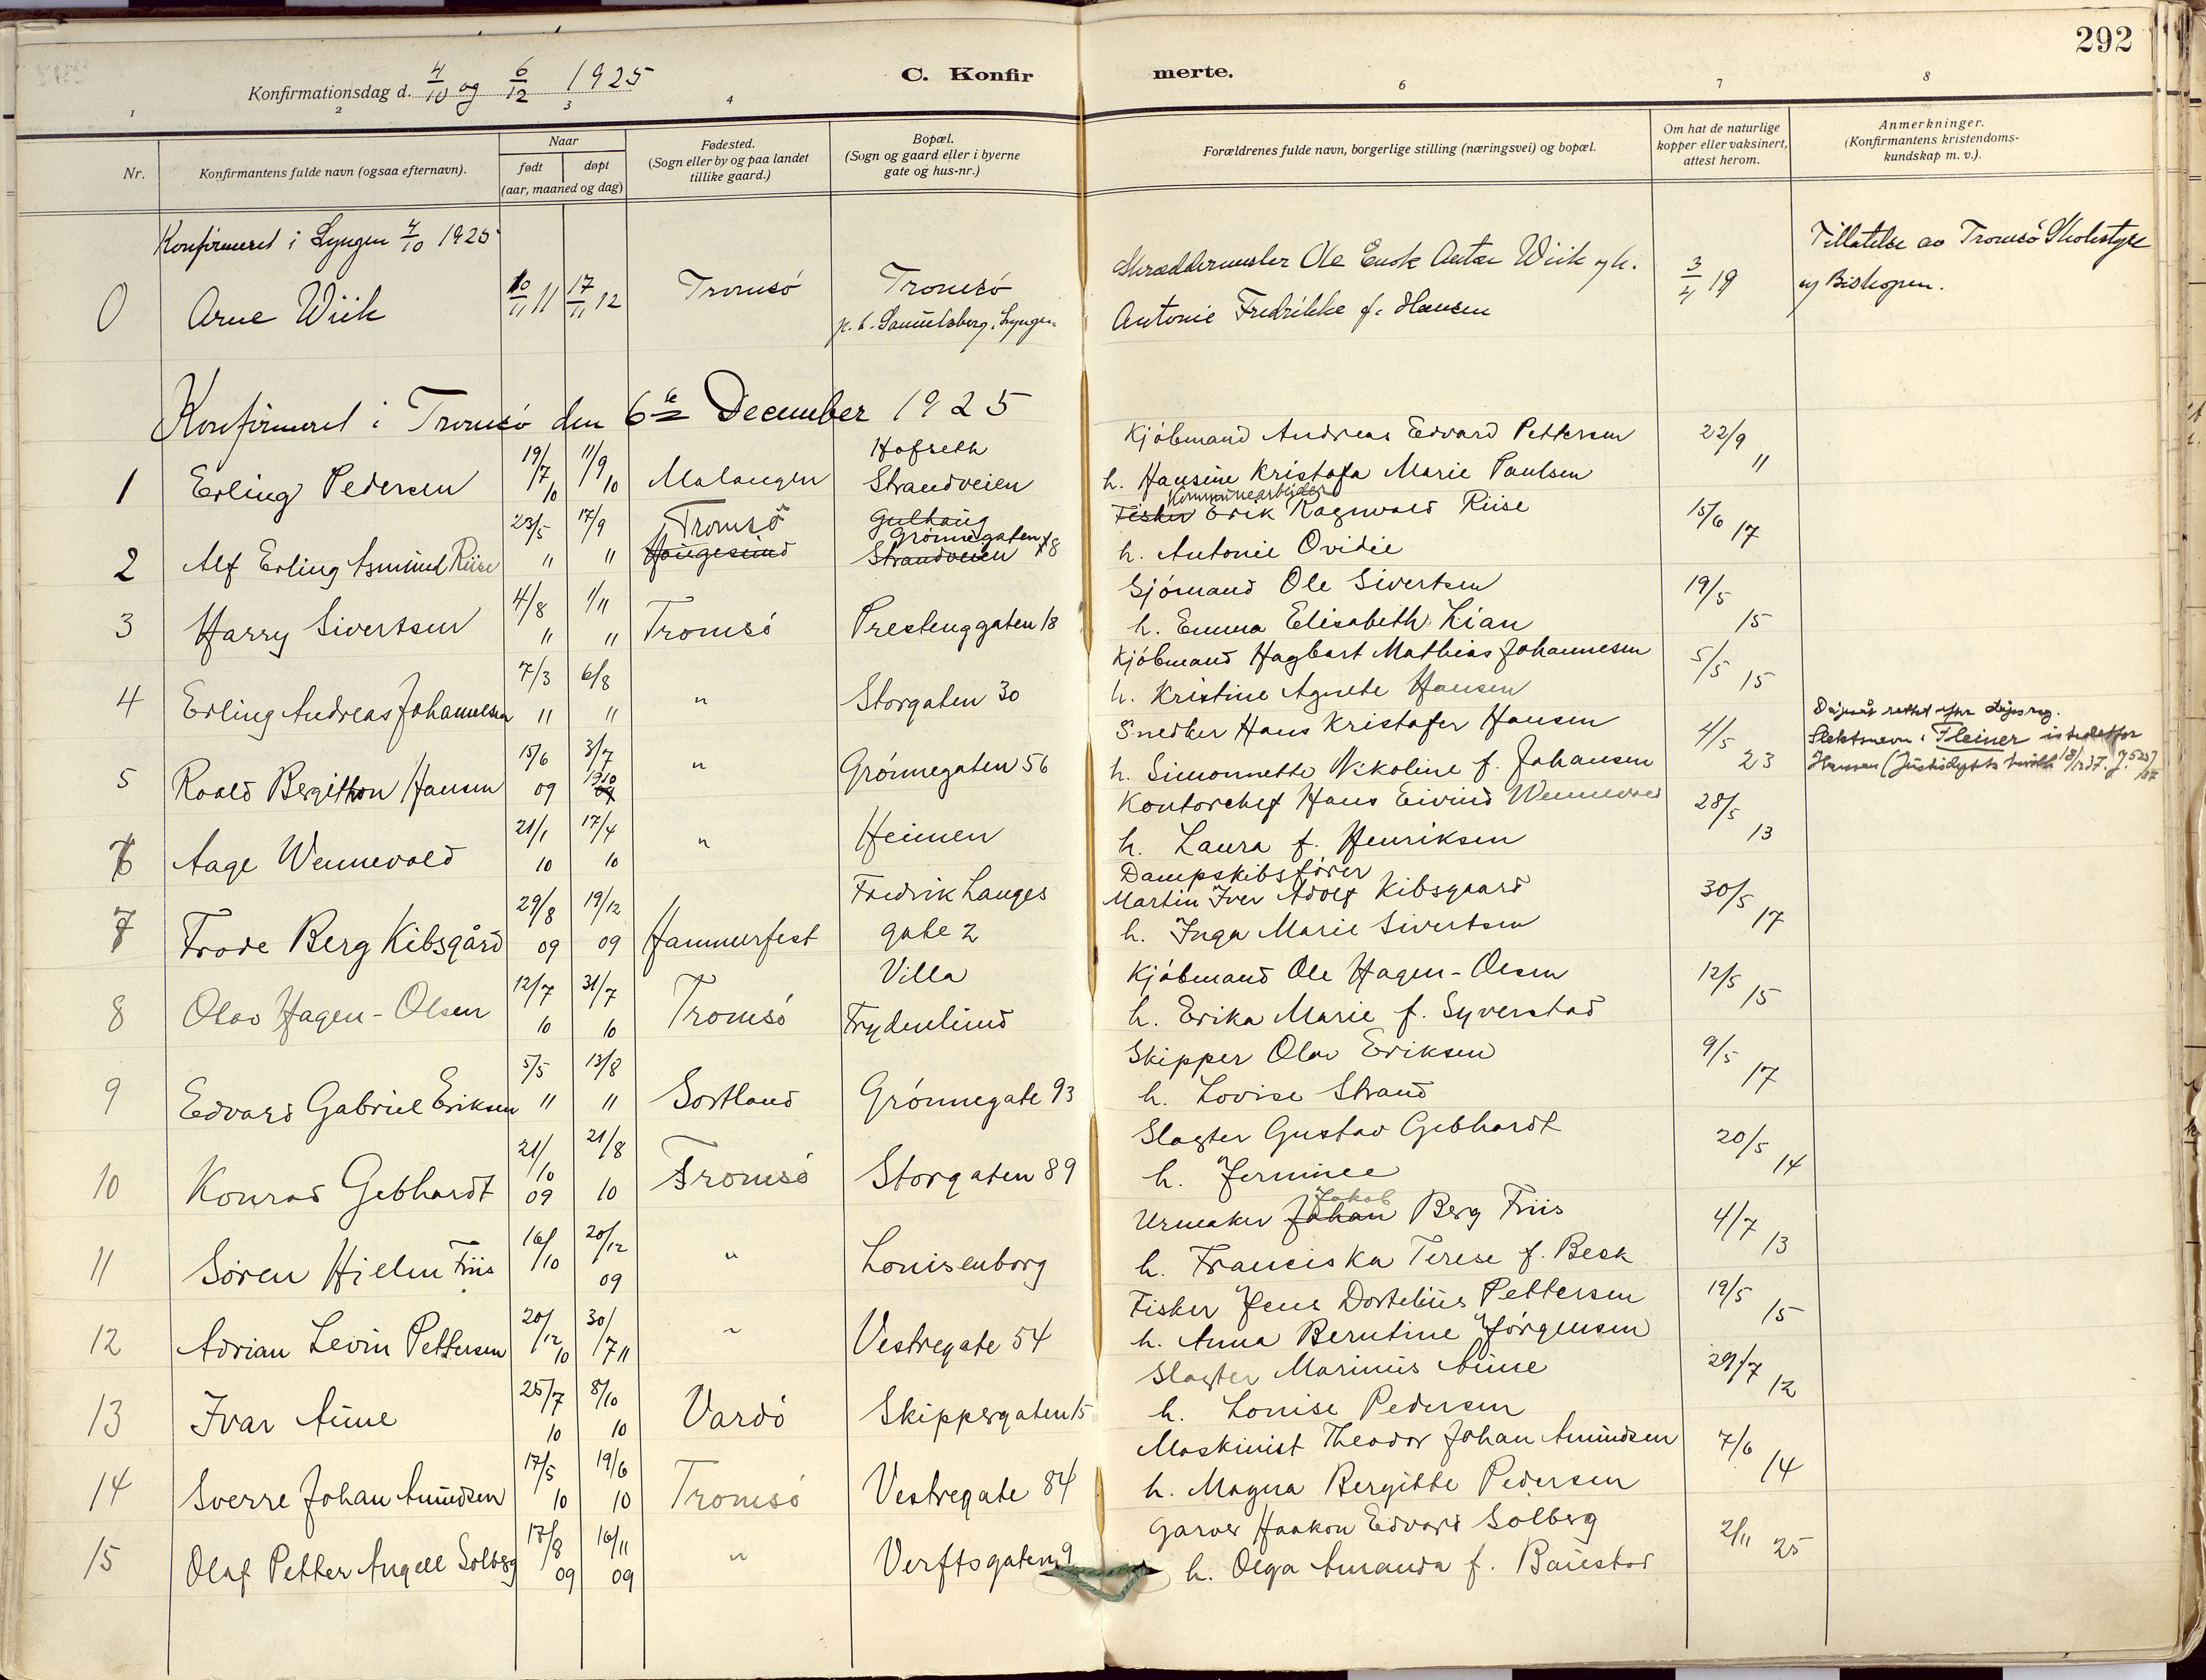 292
Konfirmationsdag d. 4/10 og 6/12 1925
C. Konfirmerte.
1 2 3 4 6 7 8
Nr.
Konfirmantens fulde navn (ogsaa efternavn).
Naar
født døpt
(aar, maaned og dag)
Fødested.
(Sogn eller by og paa landet
tillike gaard.)
Bopæl.
(Sogn og gaard eller i byerne
gate og hus-nr.)
Forældrenes fulde navn, borgerlige stilling (næringsvei) og bopæl.
Om hat de naturlige
kopper eller vaksinert,
attest herom.
Anmerkninger.
(Konfirmantens kristendoms-
kundskap m. v.).
Konfirmeret i Lyngen 4/10 1925
0 Arne Wiik 10/11 11 17/11 12 Tromsö Tromsö
p. t. Samuelsberg, Lyngen
Skræddermester Ole Enok Antze Wiik og h.
Antonie Fredrikke f. Hansen
3/4 19
Tillatelse av Tromsö Skolestyre
og Biskopen.
Konfirmeret i Tromsö den 6te December 1925
1 Erling Pedersen 19/7 10 11/9 10 Malangen Hofseth
Strandveien
Kjöbmand Andreas Edvard Pettersen
h. Hansine Kristofa Marie Paulsen
22/9 11
2 Alf Erling Asmund Riise 23/5 " 17/9 " Tromsö
Haugesund
Gulhaug
Grönnegaten 8
Strandveien
Kommunearbeider
Fisker Erik Ragnvald Riise
h. Antonie Ovidie
15/6 17
3 Harry Sivertsen 4/8 " 1/11 " Tromsö Prestenggaten 18
Sjömand Ole Sivertsen
h. Emma Elisabeth Lian
19/5 15
4 Erling Andreas Johannesen 7/3 " 6/8 " " Storgaten 30
Kjöbmand Hagbart Mathias Johannesen
h. Kristine Agnete Hansen
5/5 15
5 Roald Bergithon Hansen 15/6 09 3/7 1910 09 " Grönnegaten 56
Snedker Hans Kristofer Hansen
h. Simonnette Nikoline f. Johansen
4/5 23
Dåpsår rettet efter dåpsreg.
Slektsnavn: Fleiner istedetfor
Hansen
6 Aage Wennevold 21/1 10 17/4 10 " Heimen
Kontorchef Hans Eivind Wennevold
h. Laura f. Henriksen
28/5 13
7 Frode Berg Kibsgård 29/8 09 19/12 09 Hammerfest Fredrik Langes
gate 2
Dampskibsfører
Martin Iver Adolf Kibsgaard
h. Inga Marie Sivertsen
30/5 17
8 Olav Hagen-Olsen 12/7 10 31/7 10 Tromsö Villa
Frydenlund
Kjöbmand Ole Hagen-Olsen
h. Erika Marie f. Syverstad
12/5 15
9 Edvard Gabriel Eriksen 5/5 " 13/8 " Sortland Grönnegate 93
Skipper Olav Eriksen
h. Lovise Strand
9/5 17
10 Konrad Gebhardt 21/10 09 21/8 10 Tromsö Storgaten 89
Slagter Gustav Gebhardt
h. Jerminee
20/5 14
11 Sören Hjelm Friis 16/10 20/12 09 " Louisenborg
Jakob
Urmaker Johan Berg Friis
h. Franciska Terese f. Beck
4/7 13
12 Adrian Levin Pettersen 20/12 10 30/7 11 " Vestregate 54
Fisker Jens Dortelius Pettersen
h. Anna Berntine Jörgensen
19/5 15
13 Ivar Aune 25/7 10 8/10 10 Vardö Skippergaten 15
Slagter Marinus Aune
h. Louise Pedersen
29/7 12
14 Sverre Johan Amundsen 17/5 10 19/6 10 Tromsö Vestregate 84
Maskinist Theodor Johan Amundsen
h. Magna Bergitte Pedersen
7/6 14
15 Olaf Petter Angell Solberg 17/8 09 16/11 09 " Verftsgaten 9
Garver Haakon Edvard Solberg
h. Olga Amanda f. Baustad
2/11 25